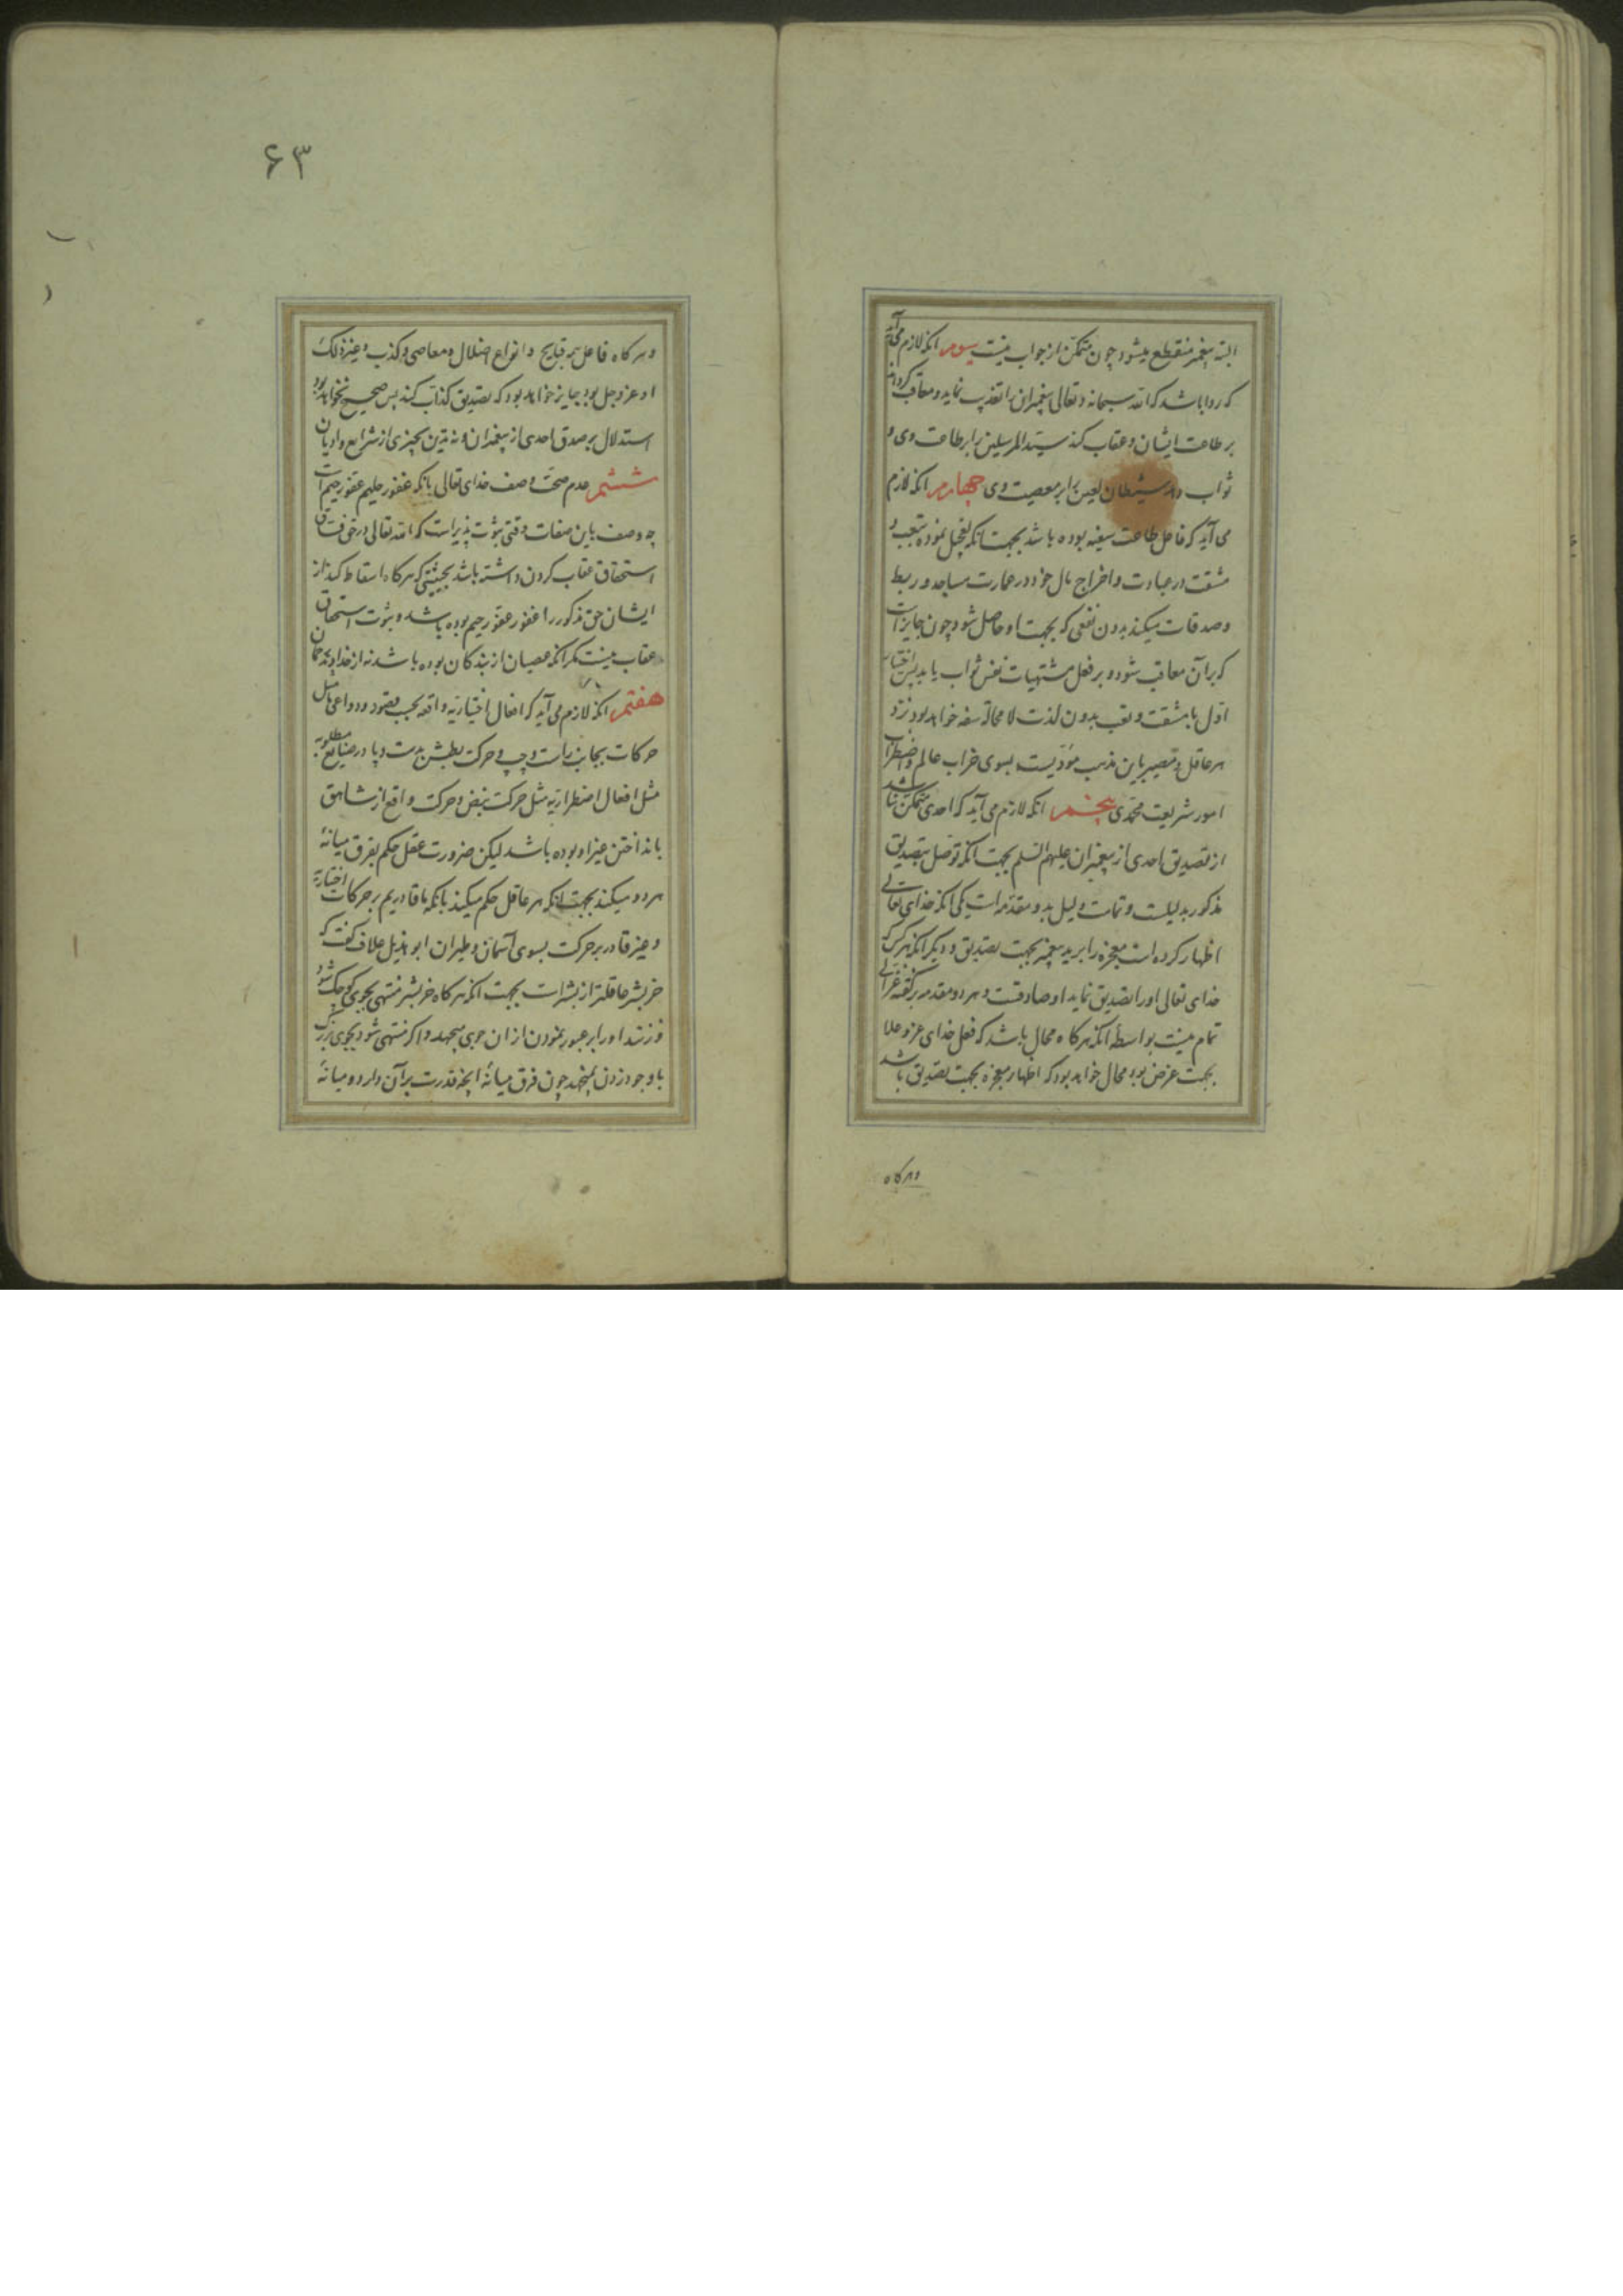 البته پیغمبر منقطع میشود چون متمکن از جواب نیست سوم آنکه لازم می آید
که روا باشد که الله سبحانه و تعالی پیغمبران را تعذیب نماید و معاقب گرداند
بر طاعت ایشان و عقاب کند سید المرسلین را بر طاعت وی و
ثواب دهد شیطان لعین را بر معصیت وی چهارم آنکه لازم
می آید که فاعل طاعت سفیه بوده باشد بجهت آنکه تعجیل نموده بتعب و
مشقت در عبادت و اخراج مال خود در عمارت مساجد و ربط
و صدقات میکند بدون نفعی که بجهت او حاصل شود چون جایز است
که بر آن معاقب شود و بر فعل مشتهیات نفس ثواب یابد پس اختیار
اول با مشقت و تعب بدون لذت لا محاله سفه خواهد بود نزد
هر عاقل و مصیر باین مذهب مؤدیست بسوی خراب عالم و اضطراب
امور شریعت محمدی پنجم آنکه لازم می آید که احدی متمکن نباشد
از تصدیق احدی از پیغمبران علیهم السلم بجهت آنکه توصل بتصدیق
مذکور بدلیلست و تمامت دلیل بدو مقدمه است یکی آنکه خدای تعالی
اظهار کرده است معجزه را بر ید پیغمبر بجهت تصدیق و دیگر آنکه هر کس که
خدای تعالی او را تصدیق نماید او صادقست و هر دو مقدمه بر گفته
تمام نیست بواسطه آنکه هر گاه محال باشد که فعل خدای عز و علا
بجهت غرض بود محال خواهد بود که اظهار معجزه بجهت تصدیق باشد
و هر گاه
۶۳
و هر گاه فاعل همه قبایح و انواع اضلال و معاصی و کذب و غیر ذلک
او عز و جل بود جایز خواهد بود که تصدیق کذاب کند پس صحیح نخواهد بود
استدلال بر صدق احدی از پیغمبران و نه تدین بچیزی از شرایع و ادیان
ششم عدم صحت وصف خدای تعالی بآنکه غفور حلیم عفو رحیم است
چه وصف باین صفات وقتی ثبوت پذیر است که الله تعالی در حق فساق
استحقاق عقاب کردن داشته باشد بحیثیتی که هر گاه اسقاط کند از
ایشان حق مذکور را غفور عفو رحیم بوده باشد و ثبوت استحقاق
عقاب نیست مگر آنکه عصیان از بندگان بوده باشد نه از خداوند
هفتم آنکه لازم می آید که افعال اختیاریه واقعه بحسب قصود و دواعی ما مثل
حرکات بجانب راست و چپ و حرکت بطش بدست و پا در صنایع مطلوبه
مثل افعال اضطراریه مثل حرکت نبض و حرکت واقع از شاهق
بانداختن غیر او بوده باشد لیکن ضرورت عقل حکم بفرق میانه
هر دو میکند بجهت آنکه هر عاقل حکم میکند بآنکه ما قادریم بر حرکات اختیاریه
و غیر قادر بر حرکت بسوی آسمان و طیران ابو هذیل علاف گفت که
خر بشر عاقلتر از بشر است بجهت آنکه هر گاه خر بشر منتهی بجوی کوچک شود
و زنند او را بر عبور نمودن از آن جوی میجهد و اگر منتهی شود بجوی بزرگ
با وجود زدن نمیجهد چون فرق میانه آنچه قدرت بر آن دارد و میانه